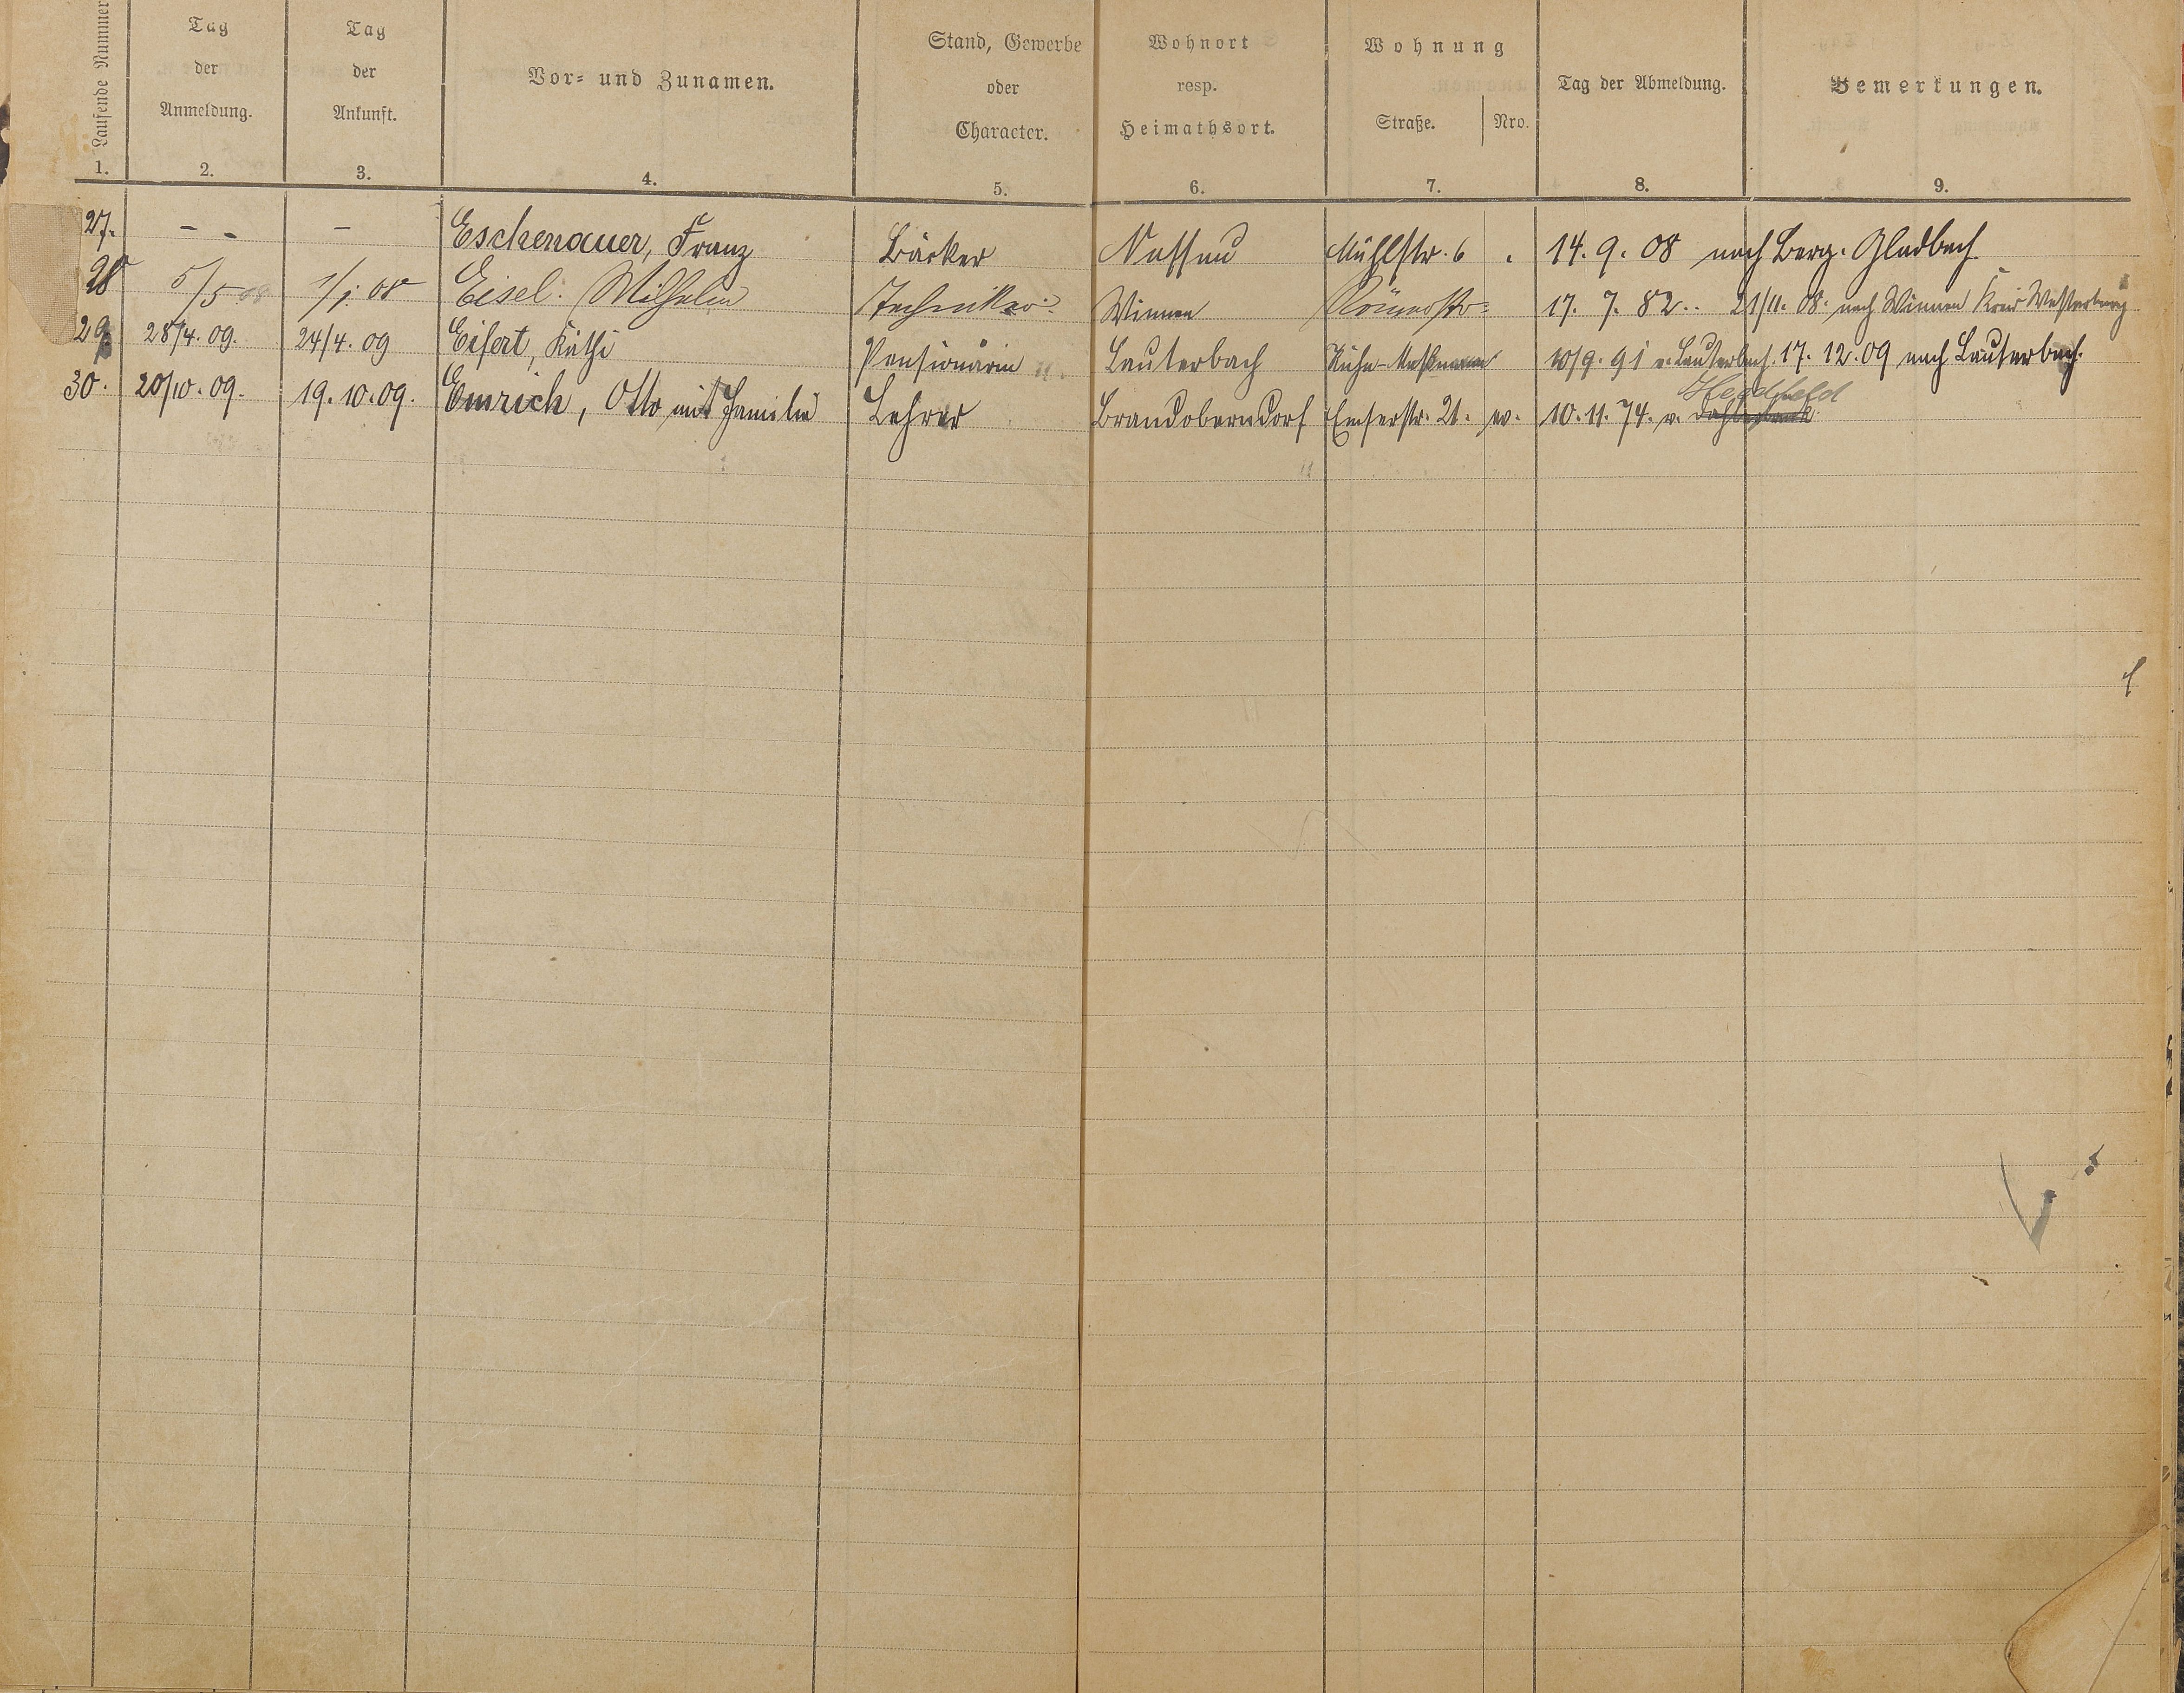 Laufende Nummer
Tag
der
Anmeldung.
Tag
der
Ankunft.
Vor- und Zunamen.
Stand, Gewerbe
oder
Character.
Wohnort
resp.
Heimathsort.
Wohnung
Straße. Nro.
Tag der Abmeldung.
Bemerkungen.
1. 2. 3. 4. 5. 6. 7. 8. 9.
27. - - - Eschenauer, Franz Bäcker Nassau Mühlstr. 6 14. 9. 08 nach Berg. Gladbach
28 5/5 08 1/1. 08 Eisel. Wilhelm Techniker Winnen Römerstr. 17. 7. 82.. 21/11. 08. nach Winnen Kreis Westerburg
29. 28/4. 09. 24/4. 09 Eifert, Käthi Pensionärin Lauterbach 10/9. 91 v. Lauterbach. 17. 12. 09 nach Lauterbach.
30. 20/10. 09. 19. 10. 09. Emrich, Otto mit Familie Lehrer Brandoberndorf Emserstr. 21. 10. 11. 74. v.